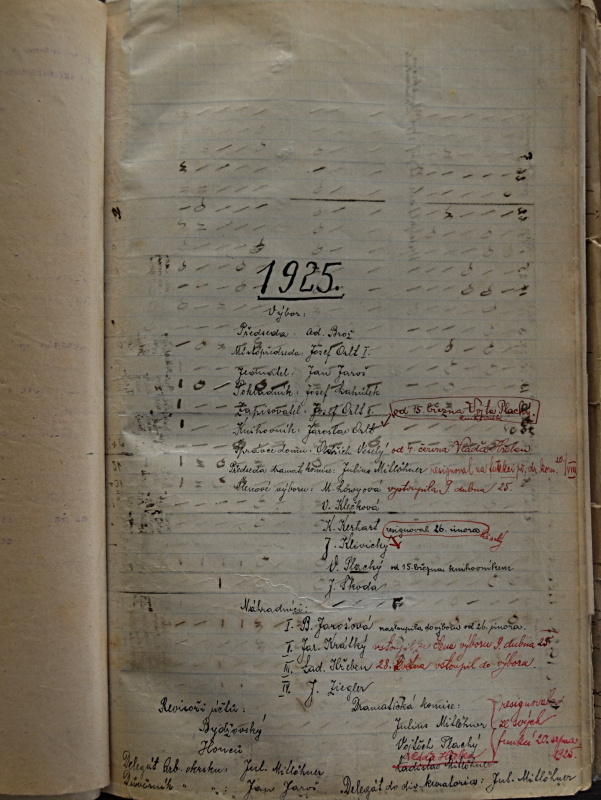 1925.
Výbor:
Předseda: Ad. Brož
Místopředseda: Josef Ortt I.
Jednatel: Jan Jaroš
Pokladník: Josef
Zapisovatel: Josef Ortt II. od 15. března Vojta Plachý.
Knihovník: Jaroslav Ortt
Správce domu: Veselý od 4. června Vláďa
Předseda dramat. komise: Julius Mitlöhner resignoval na funkci dr. kom. VIII
Členové výboru: M. Löwyová vystoupila 9. dubna 25.
V. Klečková
K. Kerhart resignoval 26. února
J. Klivický
V. Plachý od 15. března knihovníkem
J. Škoda
Náhradníci:
I. B. Jarošová nastoupila do výboru od 26. února.
II. Jar. Krátký vstoupil za člena výboru 9. dubna 25
III. Lad. Hřeben 28. vstoupil do výboru.
IV. J. Ziegler
Revisoři účtů:
Bydžovský
Honců
Dramatická komise:
Julius Mitlöhner
Vojtěch Plachý
Ladislav Mitlöhner
resignovali
ze svých
funkcí 20. srpna
1925.
Delegát arb. okrsku: Jul. Mitlöhner
Důvěrník " " : Jan Jaroš Delegát do div. kuratoria: Jul. Mitlöhner